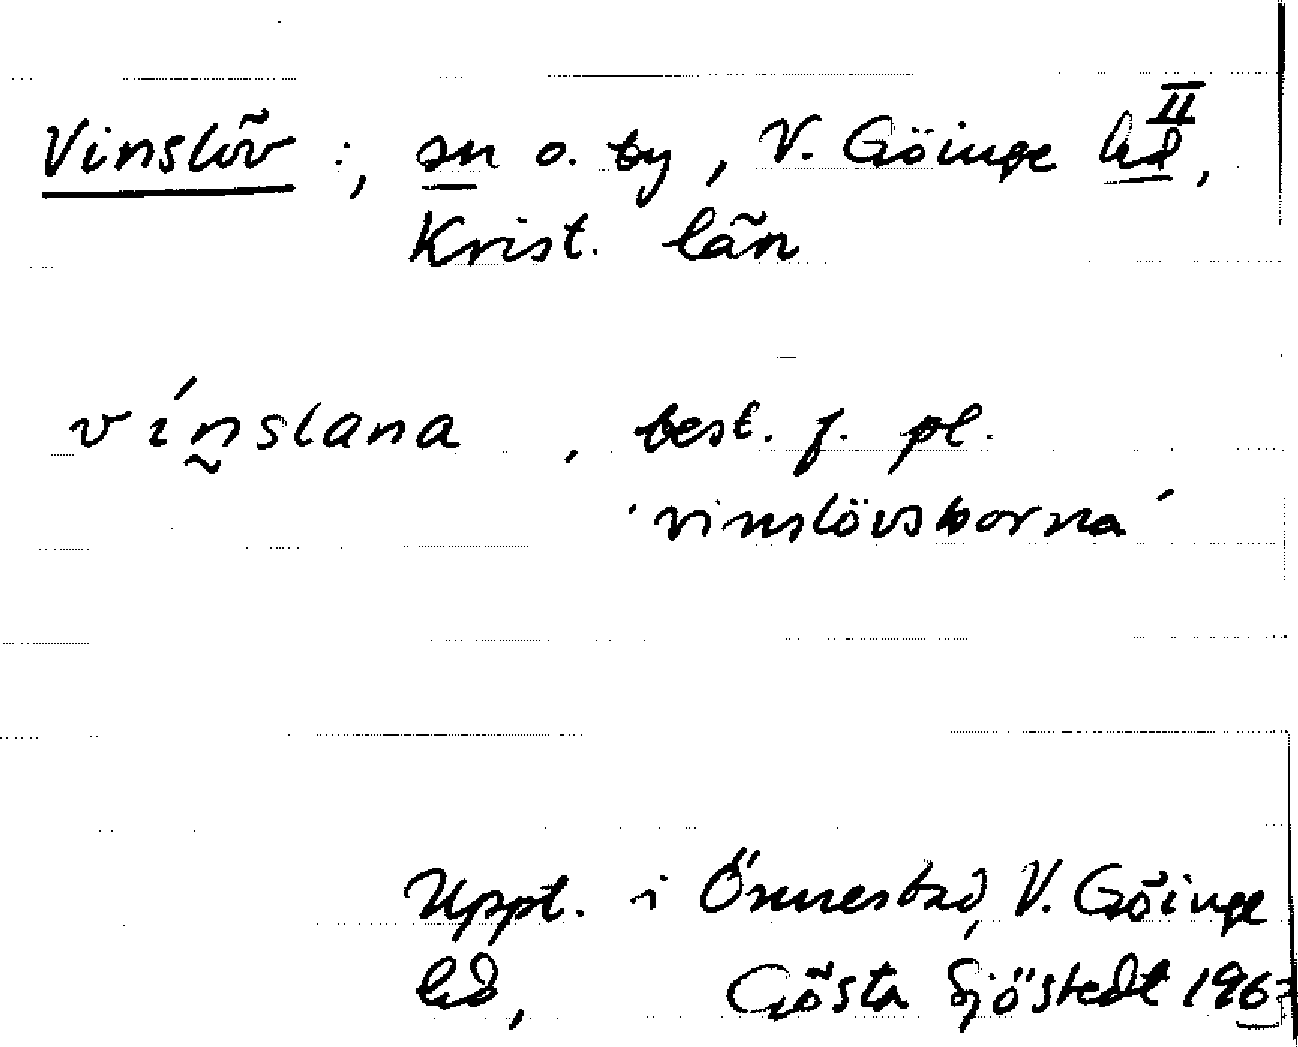 Vinslöv :, sn o. by, V. Göinge hd II,
Krist. län
vínslana, best. f. pl.
'vinslövsborna'
Uppt. i Önnestad, V. Göinge
hd, Gösta Sjöstedt